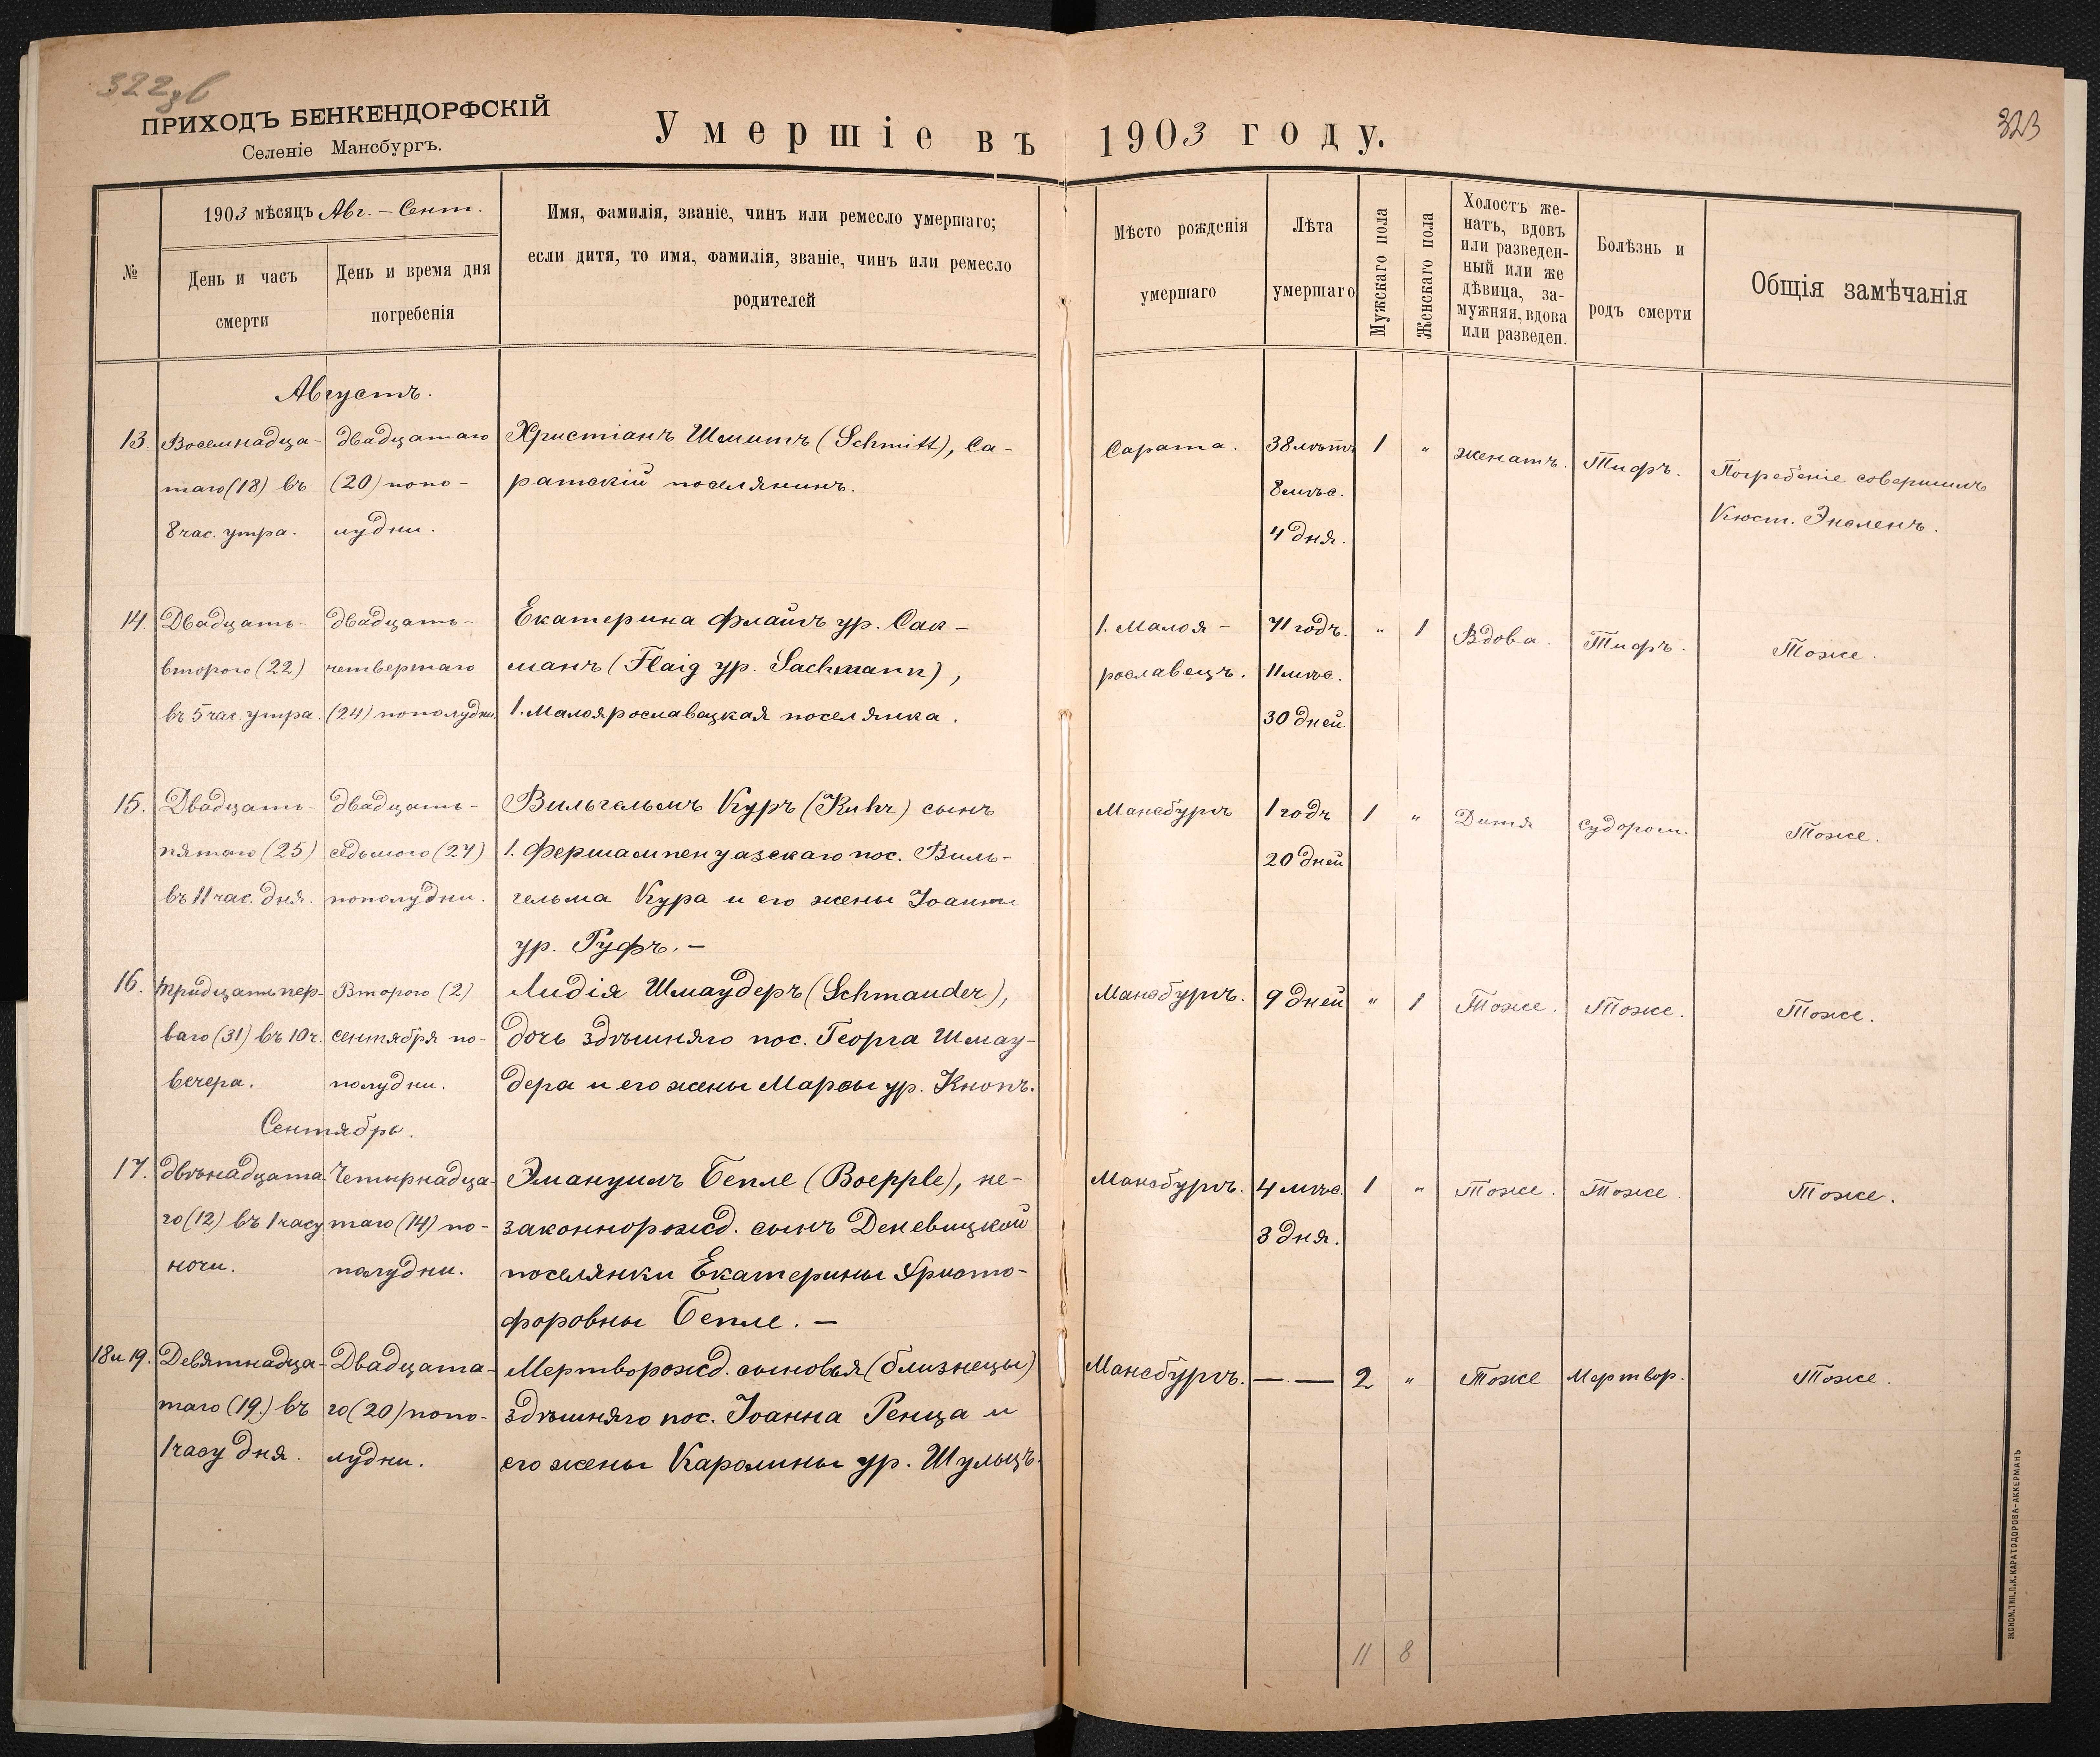 322 зв
ПРИХОДЪ БЕНКЕНДОРФСКІЙ
Селеніе Мансбургъ.
Умершіе въ 1903 году.
323
№
1903 мѣсяцъ Авг. – Сент.
День и часъ
смерти
День и время дня
погребенія
Имя, фамилія, званіе, чинъ или ремесло умершаго;
если дитя, то имя, фамилія, званіе, чинъ или ремесло
родителей
Мѣсто рожденія
умершаго
Лѣта
умершаго
Мужскаго пола
Женскаго пола
Холостъ же-
натъ, вдовъ
или разведен-
ный или же
дѣвица, за-
мужняя, вдова
или разведен.
Болѣзнь и
родъ смерти
Общія замѣчанія
Августъ.
13.
Восемнадца-
таго (18) въ
8 час. утра.
двадцатаго
(20) попо-
лудни.
Христіанъ Шмитъ (Schmitt), Са-
ратскій поселянинъ.
Сарата.
38 лѣтъ
8 мѣс.
4 дня.
1
"
женатъ.
Тифъ.
Погребеніе совершилъ
Кюст. Энсленъ.
14.
Двадцать-
второго (22)
въ 5 час. утра.
двадцать-
четвертаго
(24) пополудни.
Екатерина Флайгъ ур. Сак-
манъ (Flaig ур. Sackmann),
1. Малоярославецкая поселянка.
1. Малоя-
рославецъ.
71 годъ.
11 мѣс.
30 дней.
"
1
Вдова.
Тифъ.
Тоже.
15.
Двадцать-
пятаго (25)
въ 11 час. дня.
двадцать-
седьмого (27)
пополудни.
Вильгельмъ Куръ (Kuhr) сынъ
1. Фершампенуазскаго пос. Виль-
гельма Кура и его жены Іоанны
ур. Руфъ. –
Мансбургъ
1 годъ
20 дней
1
"
Дитя
Судороги.
Тоже.
16.
тридцать пер-
ваго (31) въ 10 ч.
вечера.
Второго (2)
сентября по-
полудни.
Лидія Шмаудеръ (Schmauder),
дочь здѣшняго пос. Георга Шмау-
дера и его жены Марѳы ур. Кнопъ.
Мансбургъ.
9 дней
"
1
Тоже.
Тоже.
Тоже.
Сентябрь.
17.
двѣнадцата-
го (12) въ 1 часу
ночи.
Четырнадца-
таго (14) по-
полудни.
Эмануилъ Бепле (Boepple), не-
законнорожд. сынъ Деневицкой
поселянки Екатерины Христо-
форовны Бепле. –
Мансбургъ.
4 мѣс.
3 дня.
1
"
Тоже.
Тоже
Тоже.
18 и 19.
Девятнадца-
таго (19.) въ
1 часу дня.
Двадцата-
го (20) попо-
лудни.
Мертворожд. сыновья (близнецы)
здѣшняго пос. Іоанна Ренца и
его жены Каролины ур. Шульцъ.
Мансбургъ.
— —
2
"
Тоже
Мертвор.
Тоже.
11
8
ЭКОНОМ. ТИП. П. К. КАРАТОДОРОВА-АККЕРМАНЬ